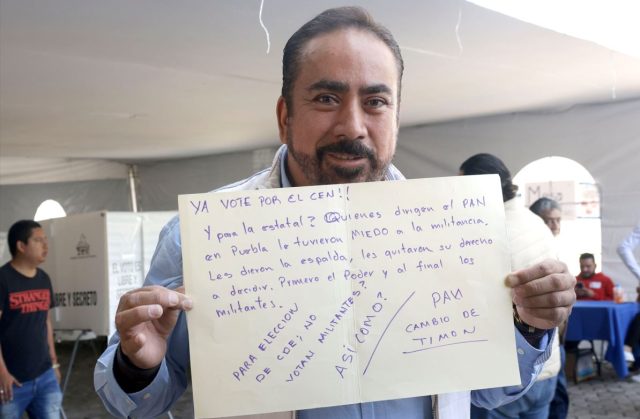 YA VOTE POR EL CEN!!
Y para la estatal? Quienes dirigen el PAN
en Puebla le tuvieron MIEDO a la militancia.
Les dieron la espalda, les quitaron su derecho
a decidir. Primero el Poder y al final los
militantes.
PARA ELECCION
DE CDE, NO
VOTAN MILITANTES?
ASÍ COMO?
PAN
CAMBIO DE
TIMON
STRANGER
THINGS
LIBRE Y SECRETO